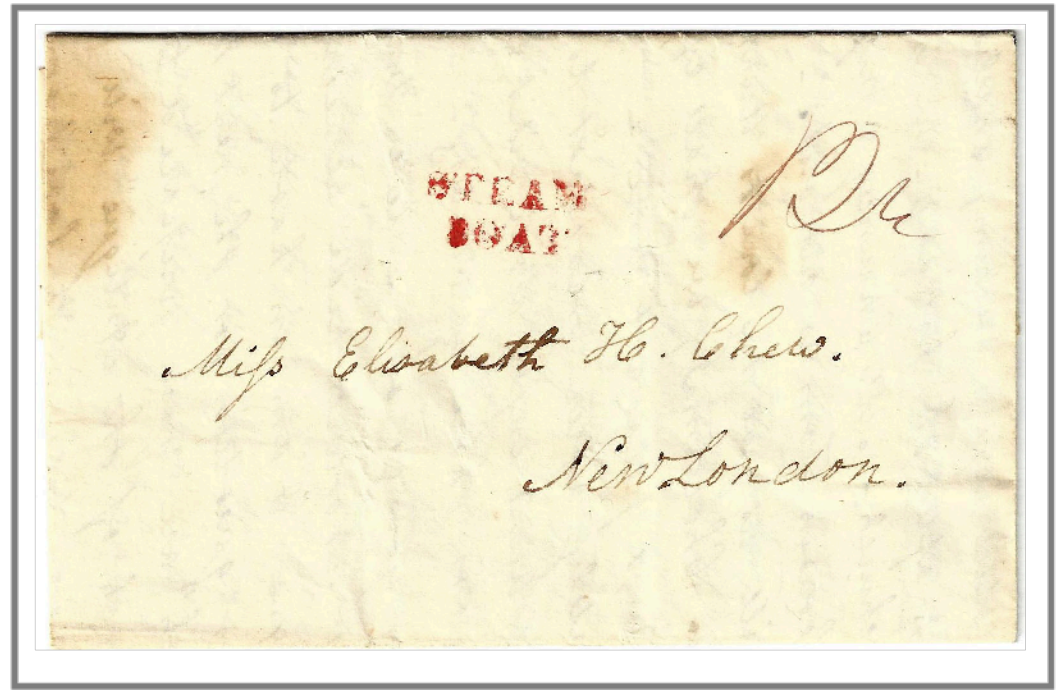 STEAM
BOAT
Miſs Elisabeth H. Chew.
New London.